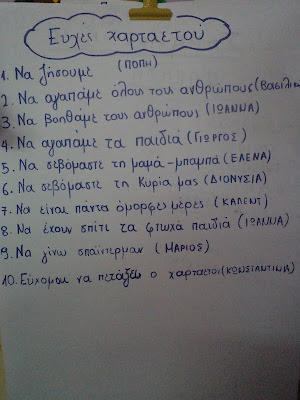 Ευχές χαρταετού
1. Να ζήσουμε (ΠΟΠΗ)
2. Να αγαπάμε όλους τους ανθρώπους (Βασιλικ
3. Να βοηθάμε τους ανθρώπους (ΙΩΑΝΝΑ)
4. Να αγαπάμε τα παιδιά (ΓΙΩΡΓΟΣ)
5. Να σεβόμαστε τη μαμά-μπαμπά (ΕΛΕΝΑ)
6. Να σεβόμαστε τη Κυρία μας (ΔΙΟΝΥΣΙΑ)
7. Να είναι πάντα όμορφες μέρες (ΚΛΕΝΤ)
8. Να έχουν σπίτι τα φτωχά παιδιά (ΙΩΑΝΝΑ)
9. Να γίνω σπαϊντερμαν (ΜΑΡΙΟΣ)
10. Εύχομαι να πετάξει ο χαρταετός (ΚΩΝΣΤΑΝΤΙΝΑ)